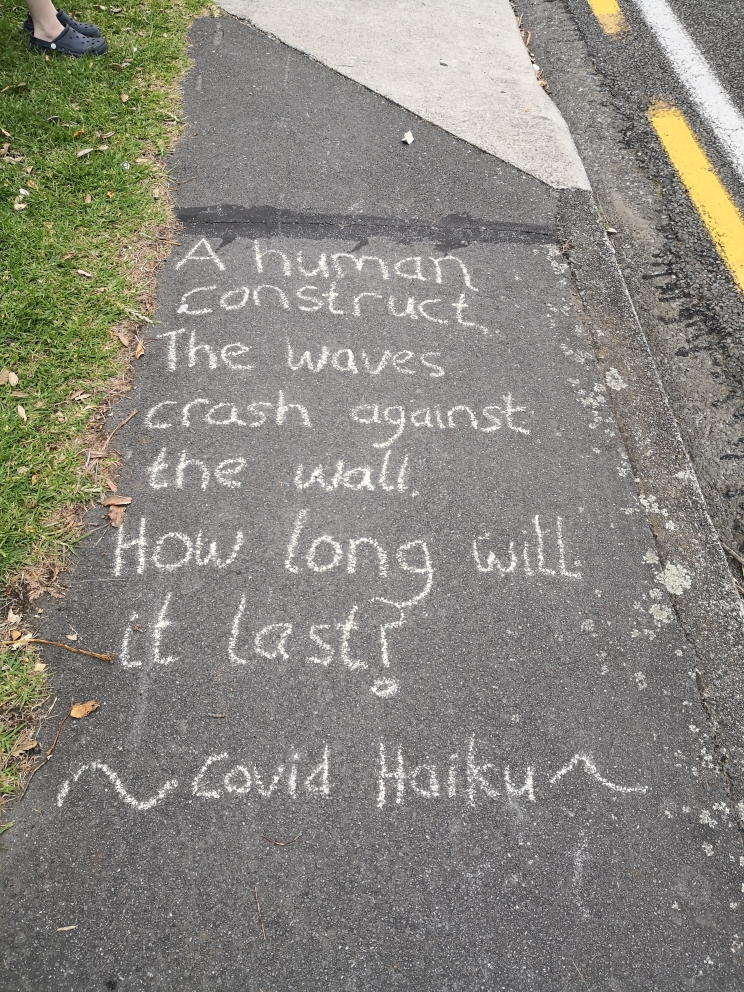 A human
construct.
The waves
crash against
the wall.
How long will
it last?
~ Covid Haiku ~